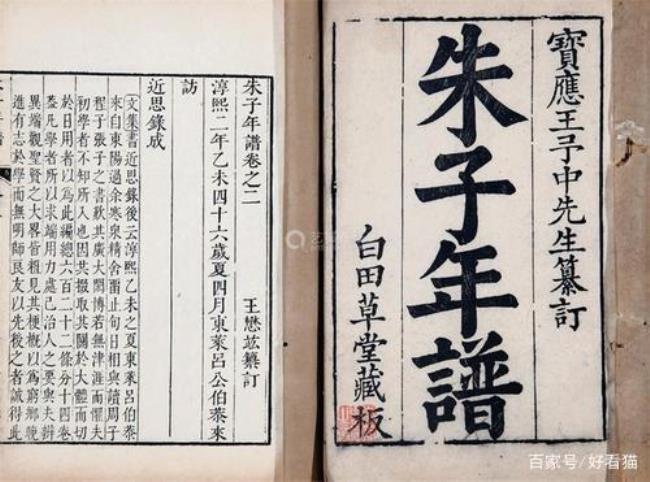 寶應王予中先生纂訂
朱子年譜
白田草堂藏板
朱子年譜卷之二
王懋竑纂訂
淳熙二年乙未四十六歲夏四月東萊呂公伯恭來
訪
近思錄成
文集書近思錄後云淳熙乙未之夏東萊呂伯恭
來自東陽過余寒泉精舍畱止旬日相與讀周子
程子張子之書歎其廣大閎博若無津涯而懼夫
初學者不知所入也因共掇取其關於大體而切
於日用者以爲此編總六百二十二條分十四卷
蓋凡學者所以求端用力處己治人之要與夫辨
異端觀聖賢之大畧皆粗見其梗概以爲窮鄉晚
進有志於學而無明師良友以先後之者誠得此
百家号/好看猫